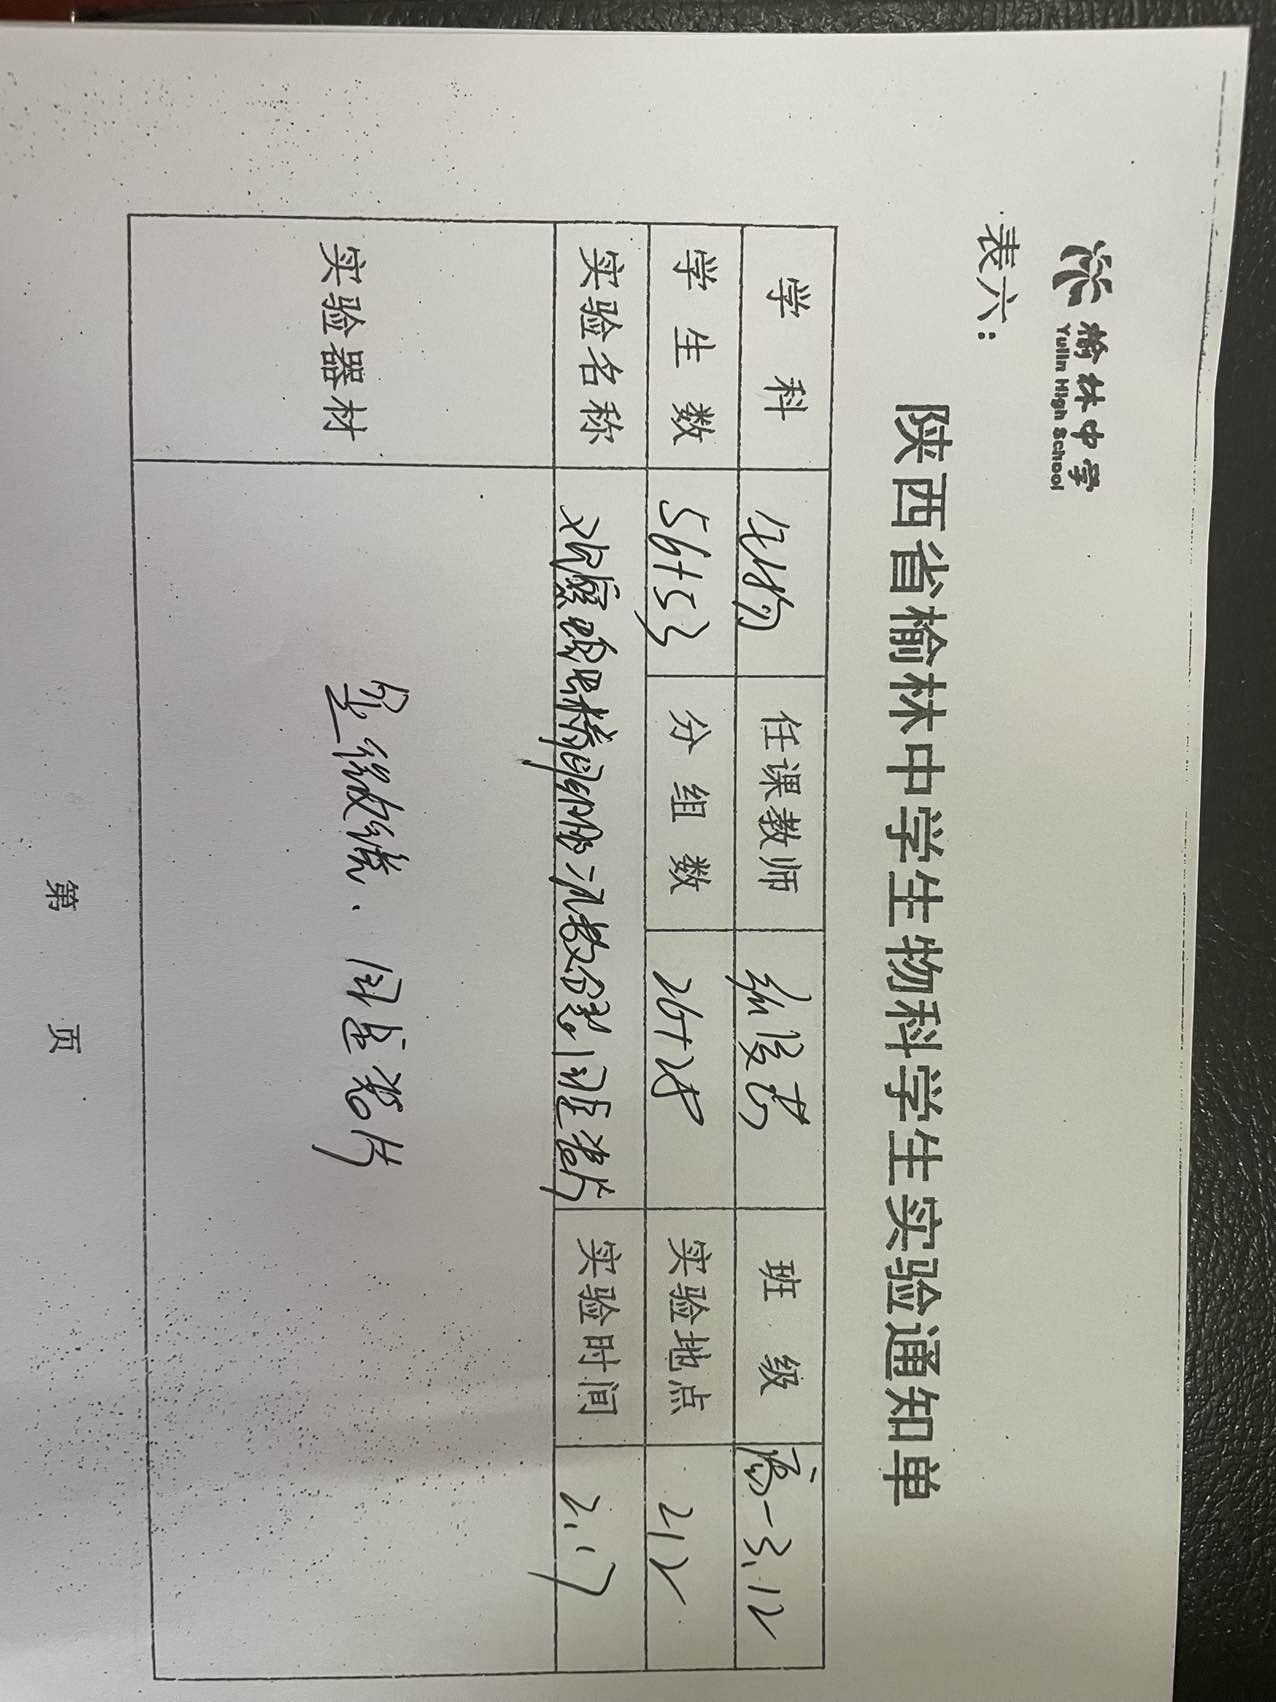 榆林中学
Yulin High School
表六：
陕西省榆林中学生物科学学生实验通知单
学科 生物 任课教师 班级 高一3.12
学生数 56+53 分组数 26+28 实验地点 212
实验名称 观察蝗虫精母细胞减数分裂固定装片 实验时间 2.17
实验器材 显微镜、固定装片
第 页